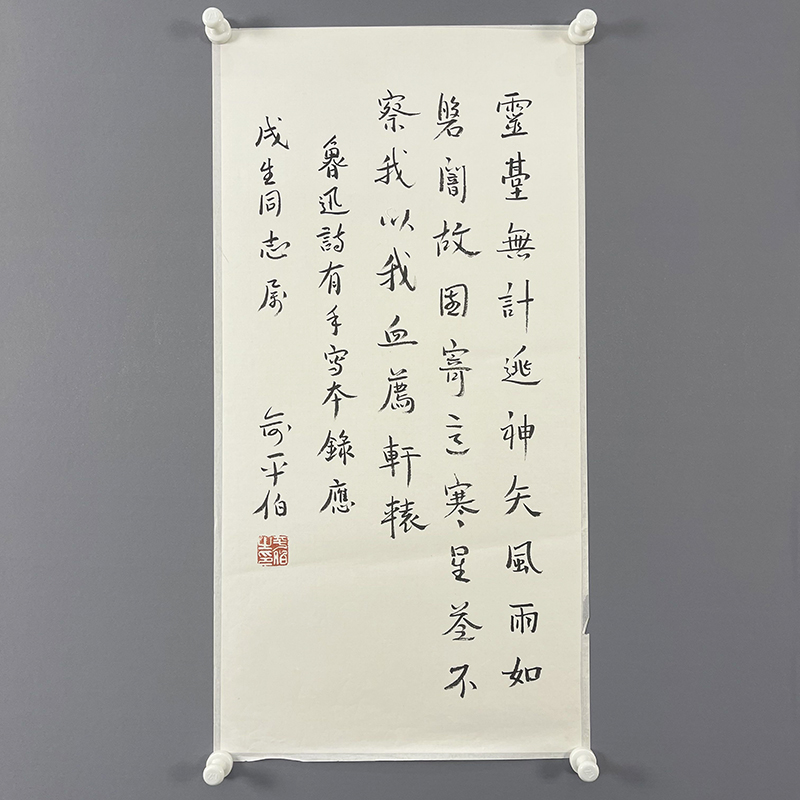 靈臺無計逃神矢風雨如
磐闇故園寄意寒星荃不
察我以我血薦軒轅
魯迅詩有手寫本錄應
成生同志属 俞平伯